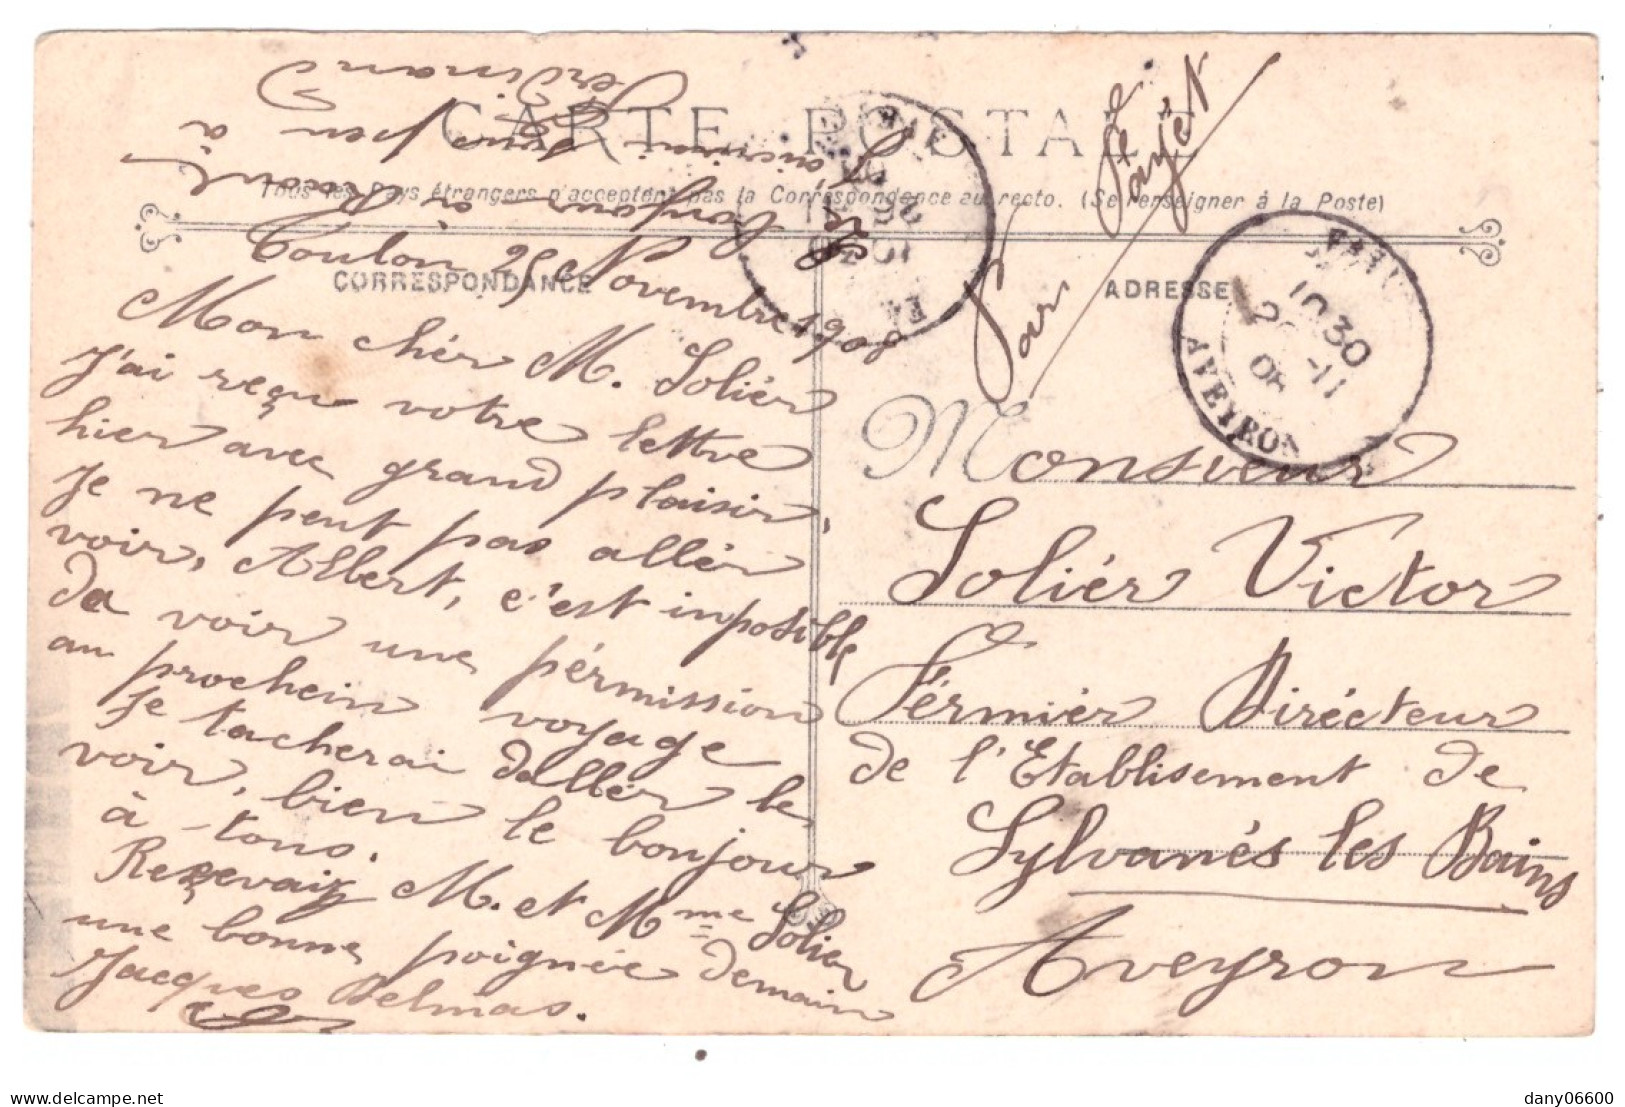 CARTE POSTALE
Tous les Pays étrangers n'acceptent pas la Correspondance au recto. (Se renseigner à la Poste)
CORRESPONDANCE
ADRESSE
Toulon 25 Novembre 1908
Mon chér M. Soliér
J'ai reçu votre lettre
hier avec grand plaisir,
Je ne peut pas allér
voir, Albert, c'est imposible
da voir une pérmission
au prochein voyage
Je tacherai dallér le
voir, bien le bonjour
à tous.
Reçevaiz M. et Mme Solier
une bonne poignée demain
Jacques Delmas.
toujour
un peu à
Ferdinan
Par Le Fayet
Monsieur
Soliér Victor
Férmiér Dirécteur
de l'Etablisement de
Sylvanés les Bains
Aveyron
10 30
26 -11
08
AVEYRON
delcampe.net
dany06600